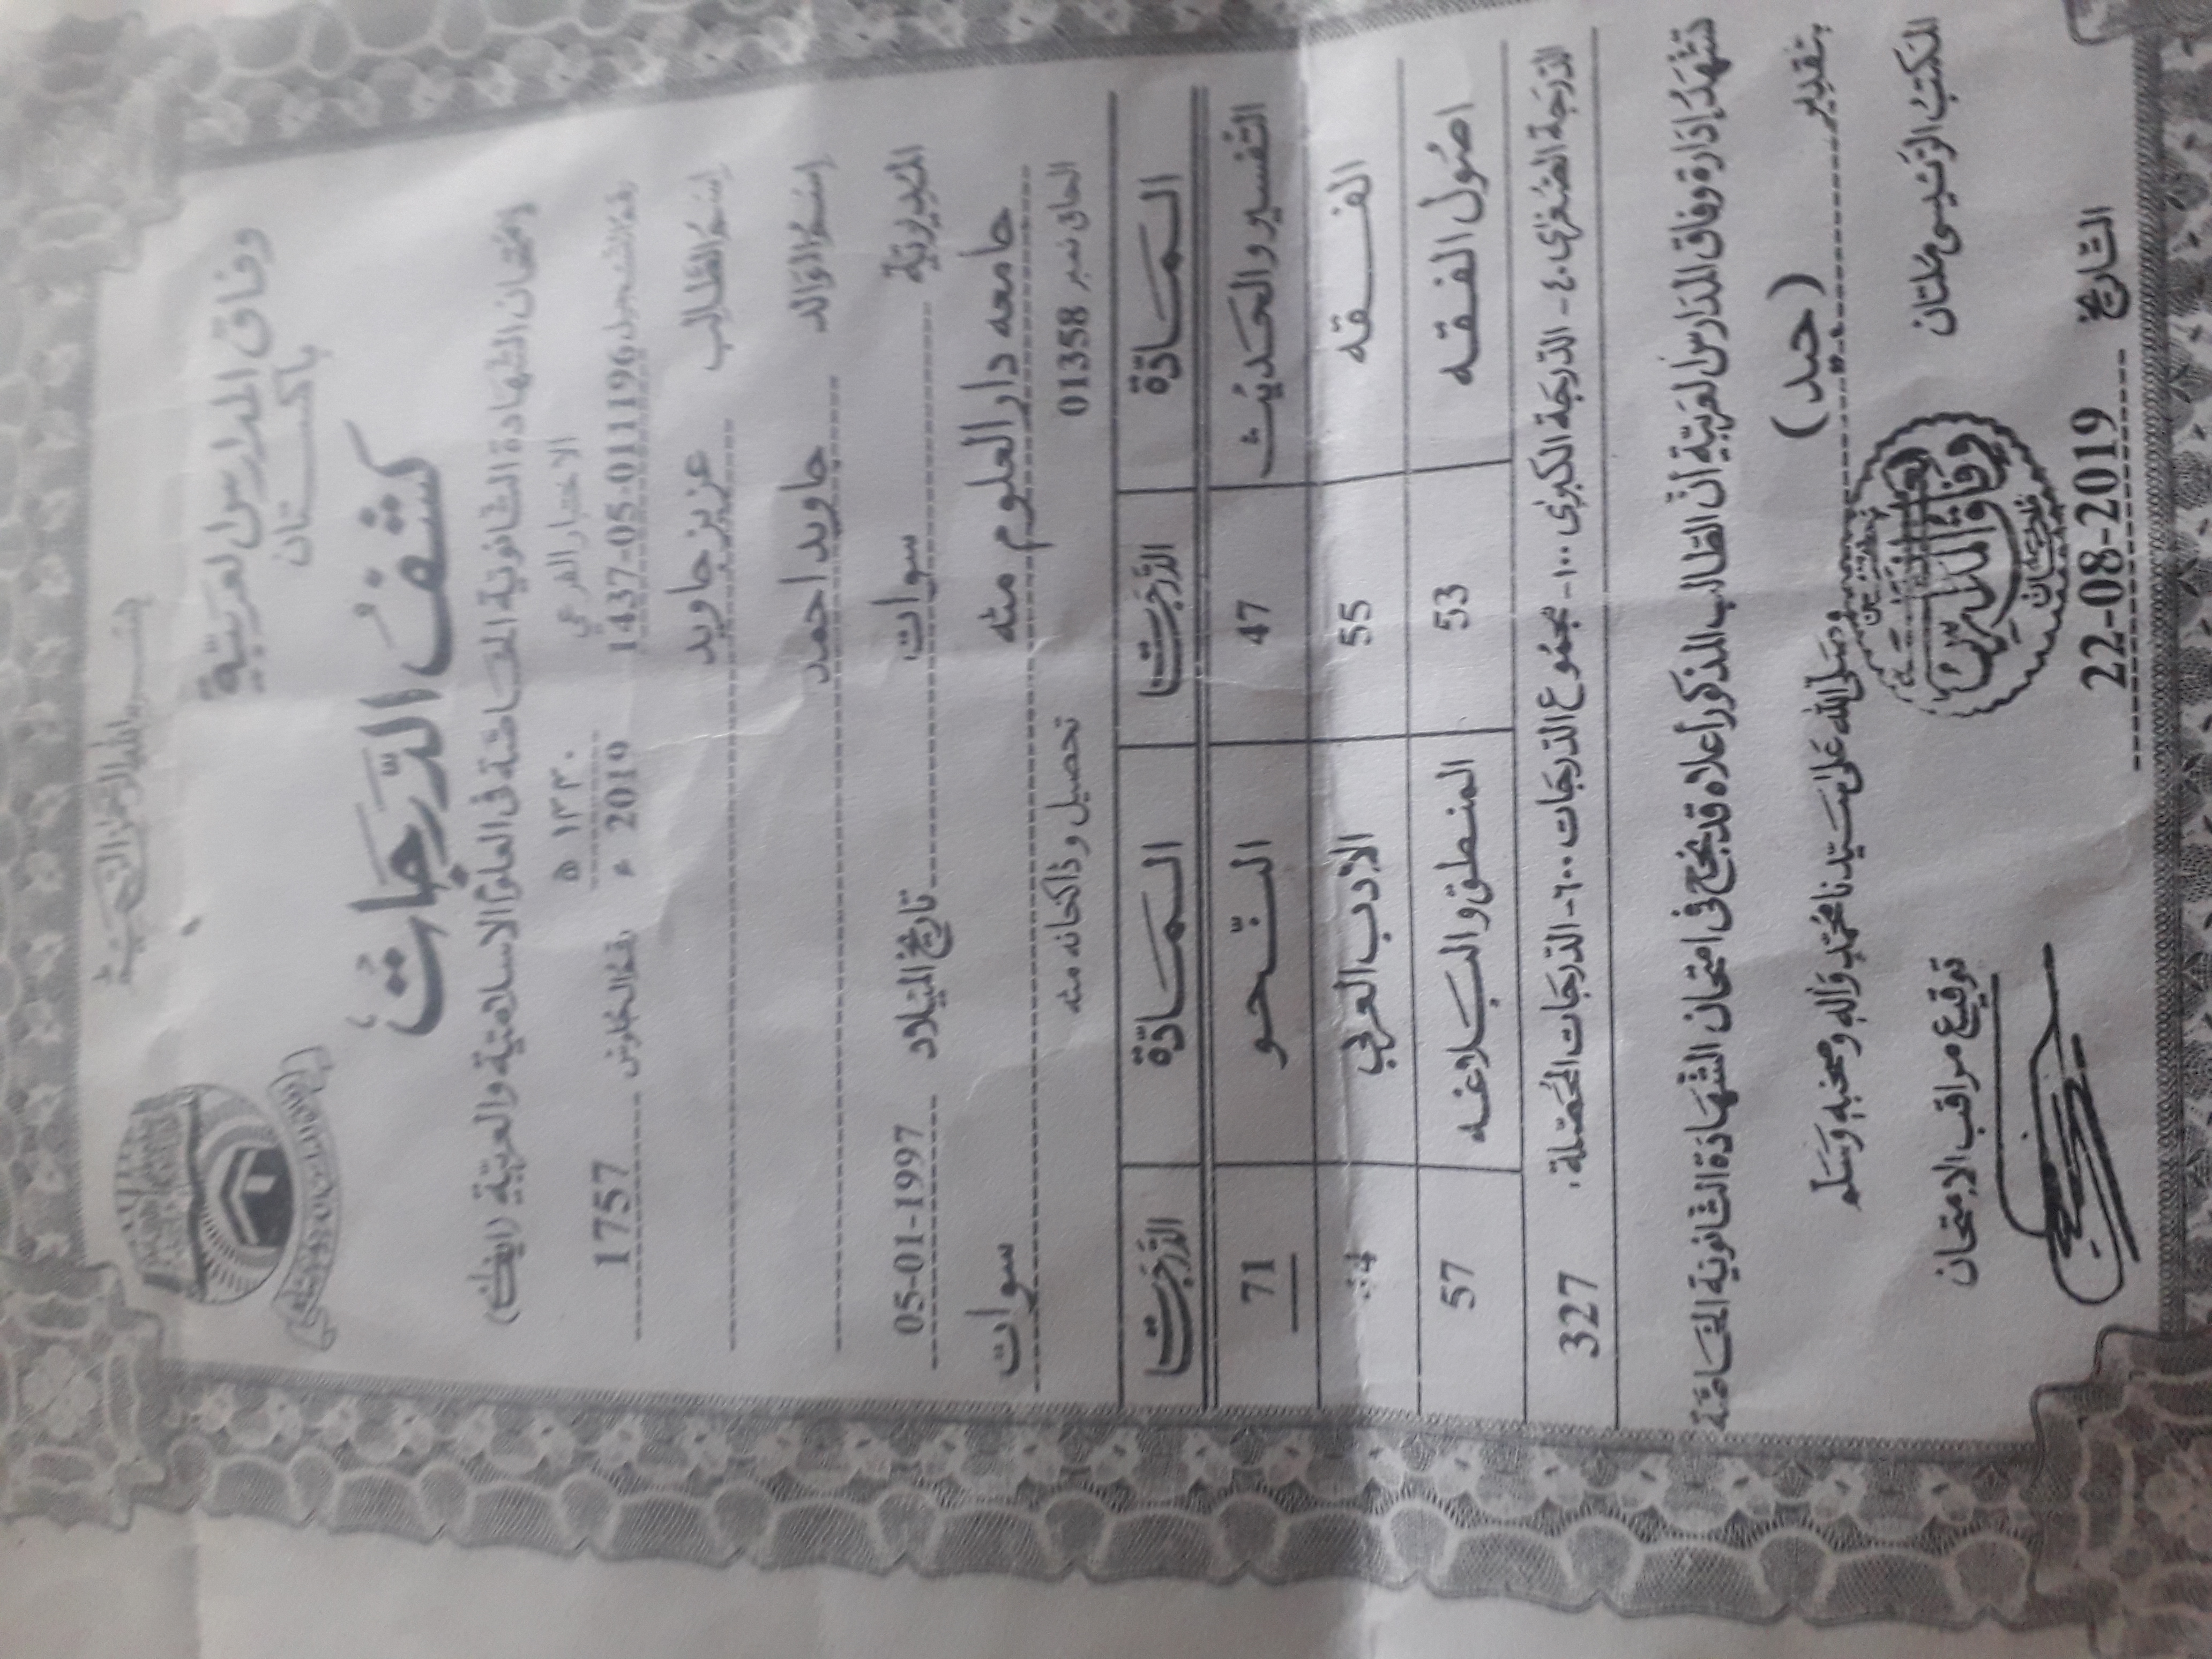 بسم الله الرحمن الرحيم
وفاق المدارس العربية
باكستان
كشف الدرجات
امتحان الشهادة الثانوية الخاصة في العلوم الاسلامية والعربية (ايف اے)
الاختبار الفرعي ١٤٤٠ ه
رقم التسجيل 1437-05-011196 2019 ء رقم الجلوس 1757
اسم الطالب عزیز جاوید
اسم الوالد جاوید احمد
المديرية سوات تاريخ الميلاد 05-01-1997
جامعه دارالعلوم مٹه سوات
الحاق نمبر 01358 تحصیل و ڈاکخانه مٹه
المادة الدرجات المادة الدرجات
التفسير والحديث 47 النحو 71
الفقه 55 الادب العربي
اصول الفقه 53 المنطق والبلاغه 57
الدرجة الصغرى ٤٠- الدرجة الكبرى ١٠٠- مجموع الدرجات ٦٠٠- الدرجات المحصلة. 327
تشهد إدارة وفاق المدارس العربية أن الطالب المذكور أعلاه قد نجح في امتحان الشهادة الثانوية الخاصة
بتقدير (جيد)
وصلى الله على سيدنا محمد وآله وصحبه وسلم
المكتب الرئيسي ملتان
توقيع مراقب الامتحان
وفاق المدارس
التاريخ 22-08-2019